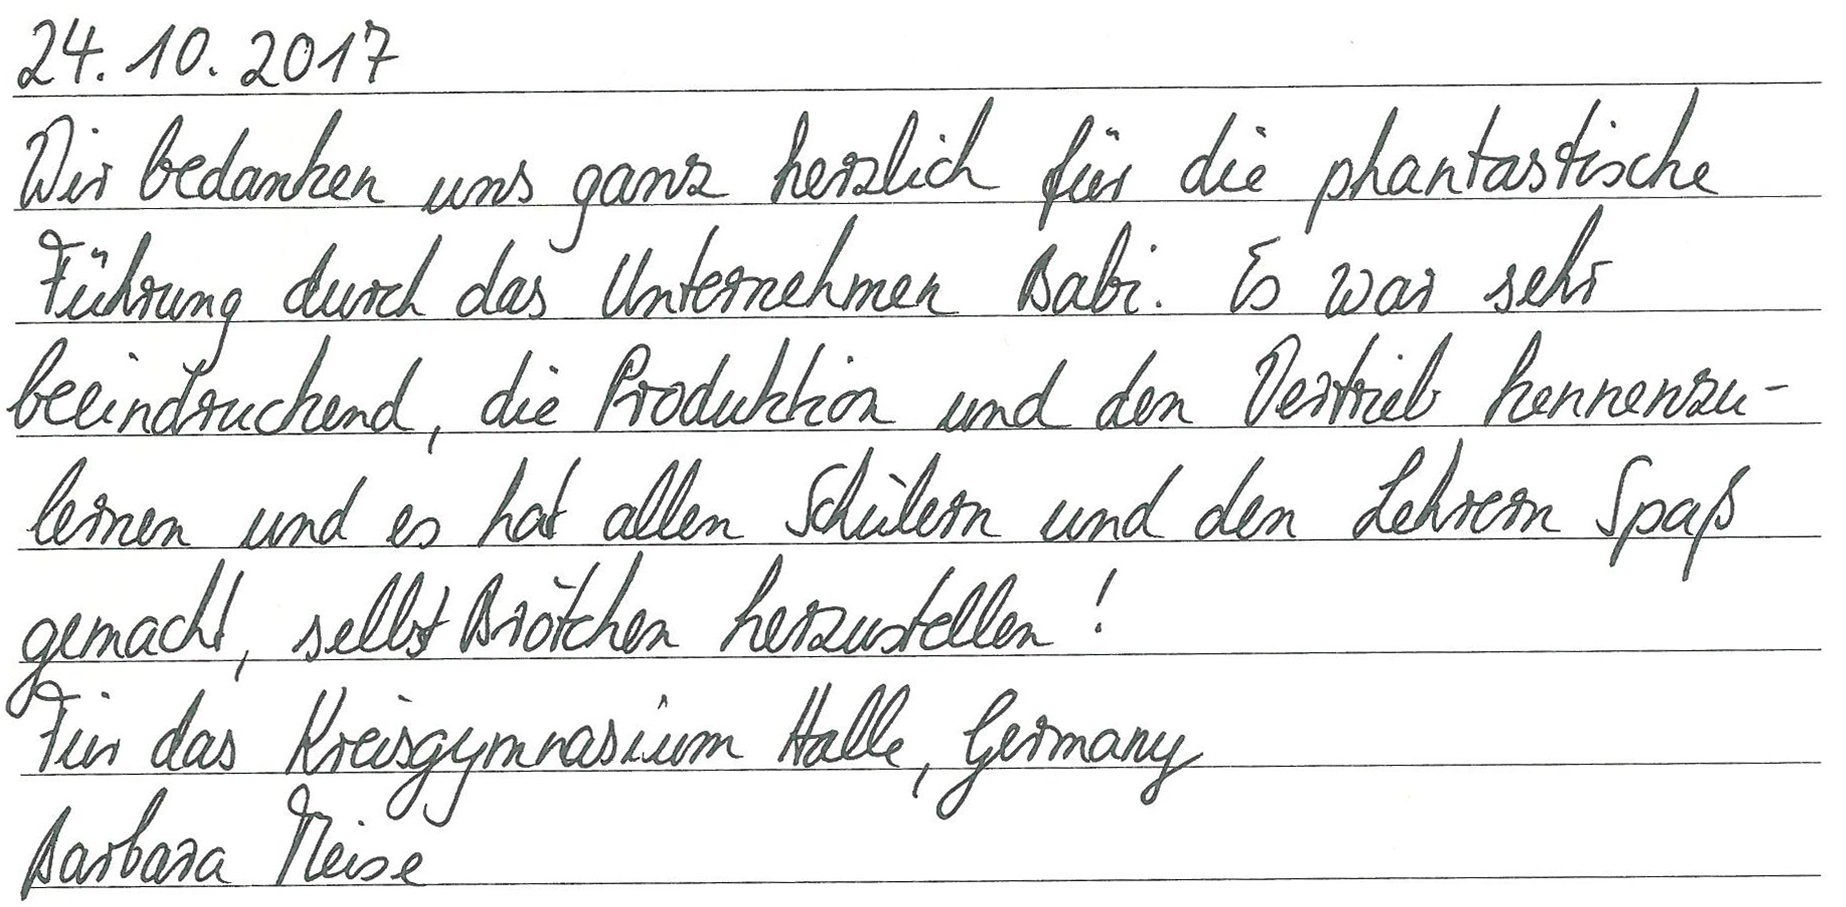 24.10.2017
Wir bedanken uns ganz herzlich für die phantastische
Führung durch das Unternehmen Babi. Es war sehr
beeindruckend, die Produktion und den Vertrieb kennenzu-
lernen und es hat allen Schülern und den Lehrern Spaß
gemacht, selbst Brötchen herzustellen!
Für das Kreisgymnasium Halle, Germany
Barbara Meise